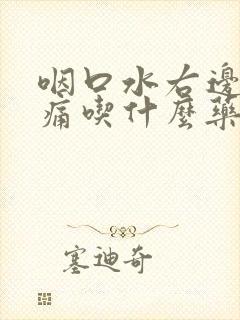 咽口水右邊
痛喫什麼藥
塞迪奇